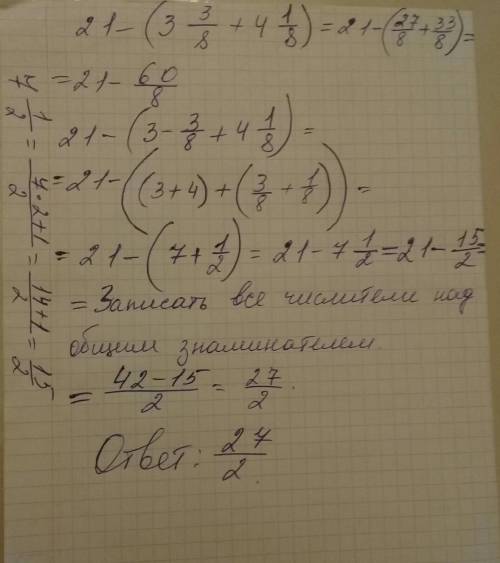 21 - (3 3/8 + 4 1/8) = 21 - (27/8 + 33/8) =
= 21 - 60/8
21 - (3 - 3/8 + 4 1/8) =
= 21 - ((3+4) + (3/8 + 1/8)) =
= 21 - (7 + 1/2) = 21 - 7 1/2 = 21 - 15/2 =
= Записать все числители над
общим знаминателем.
= (42-15)/2 = 27/2.
Ответ: 27/2.
7 1/2 = (7·2+1)/2 = (14+1)/2 = 15/2